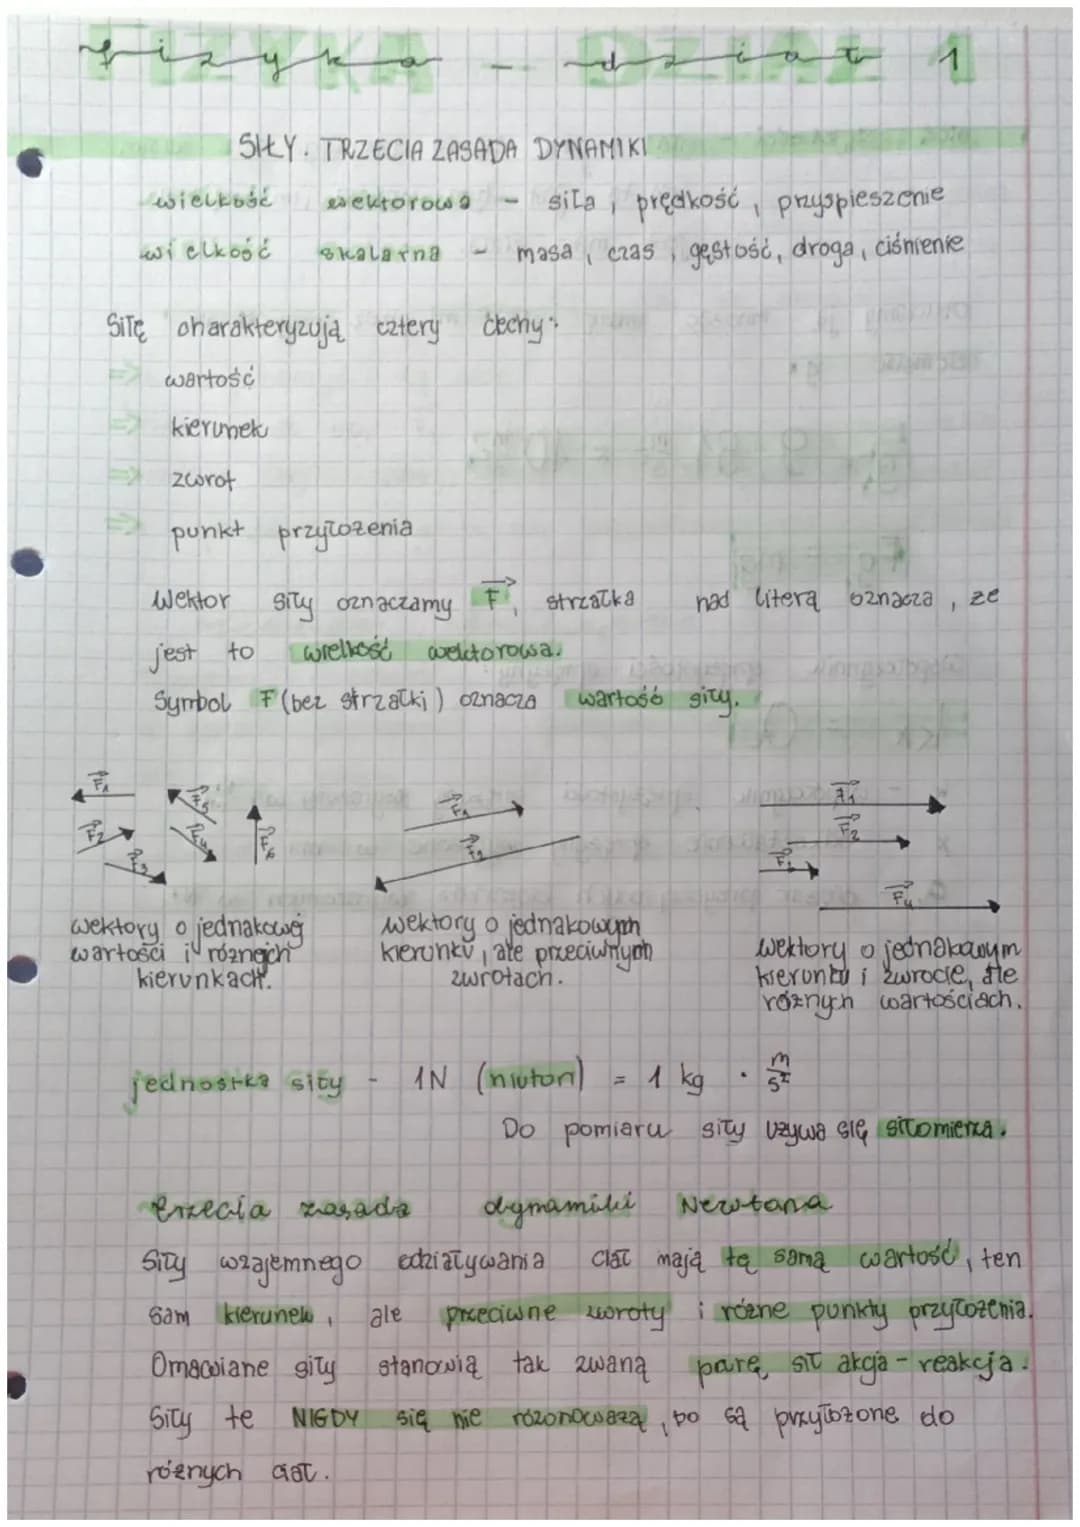 fizyka - dział 1
FIZYKA - DZIAŁ 1
SIŁY. TRZECIA ZASADA DYNAMIKI
wielkość wektorowa - siła, prędkość, przyspieszenie
wielkość skalarna - masa, czas, gęstość, droga, ciśnienie
Siłę charakteryzują cztery cechy:
⇒ wartość
⇒ kierunek
⇒ zwrot
⇒ punkt przyłożenia
Wektor siły oznaczamy F⃗, strzałka nad literą oznacza, że
jest to wielkość wektorowa.
Symbol F (bez strzałki) oznacza wartość siły.
F⃗₁
F⃗₂
F⃗₃
F⃗₄
F⃗₅
F⃗₆
wektory o jednakowej
wartości i różnych
kierunkach.
F⃗₁
F⃗₂
wektory o jednakowym
kierunku, ale przeciwnych
zwrotach.
F⃗₁
F⃗₂
F⃗₃
F⃗₄
wektory o jednakowym
kierunku i zwrocie, ale
różnych wartościach.
jednostka siły - 1N (niuton) = 1 kg · m/s²
Do pomiaru siły używa się siłomierza.
trzecia zasada dynamiki Newtona
Siły wzajemnego odziaływania ciał mają tę samą wartość, ten
sam kierunek, ale przeciwne zwroty i różne punkty przyłożenia.
Omawiane siły stanowią tak zwaną parę sił akcja - reakcja.
Siły te NIGDY się nie równoważą, bo są przyłożone do
różnych ciał.